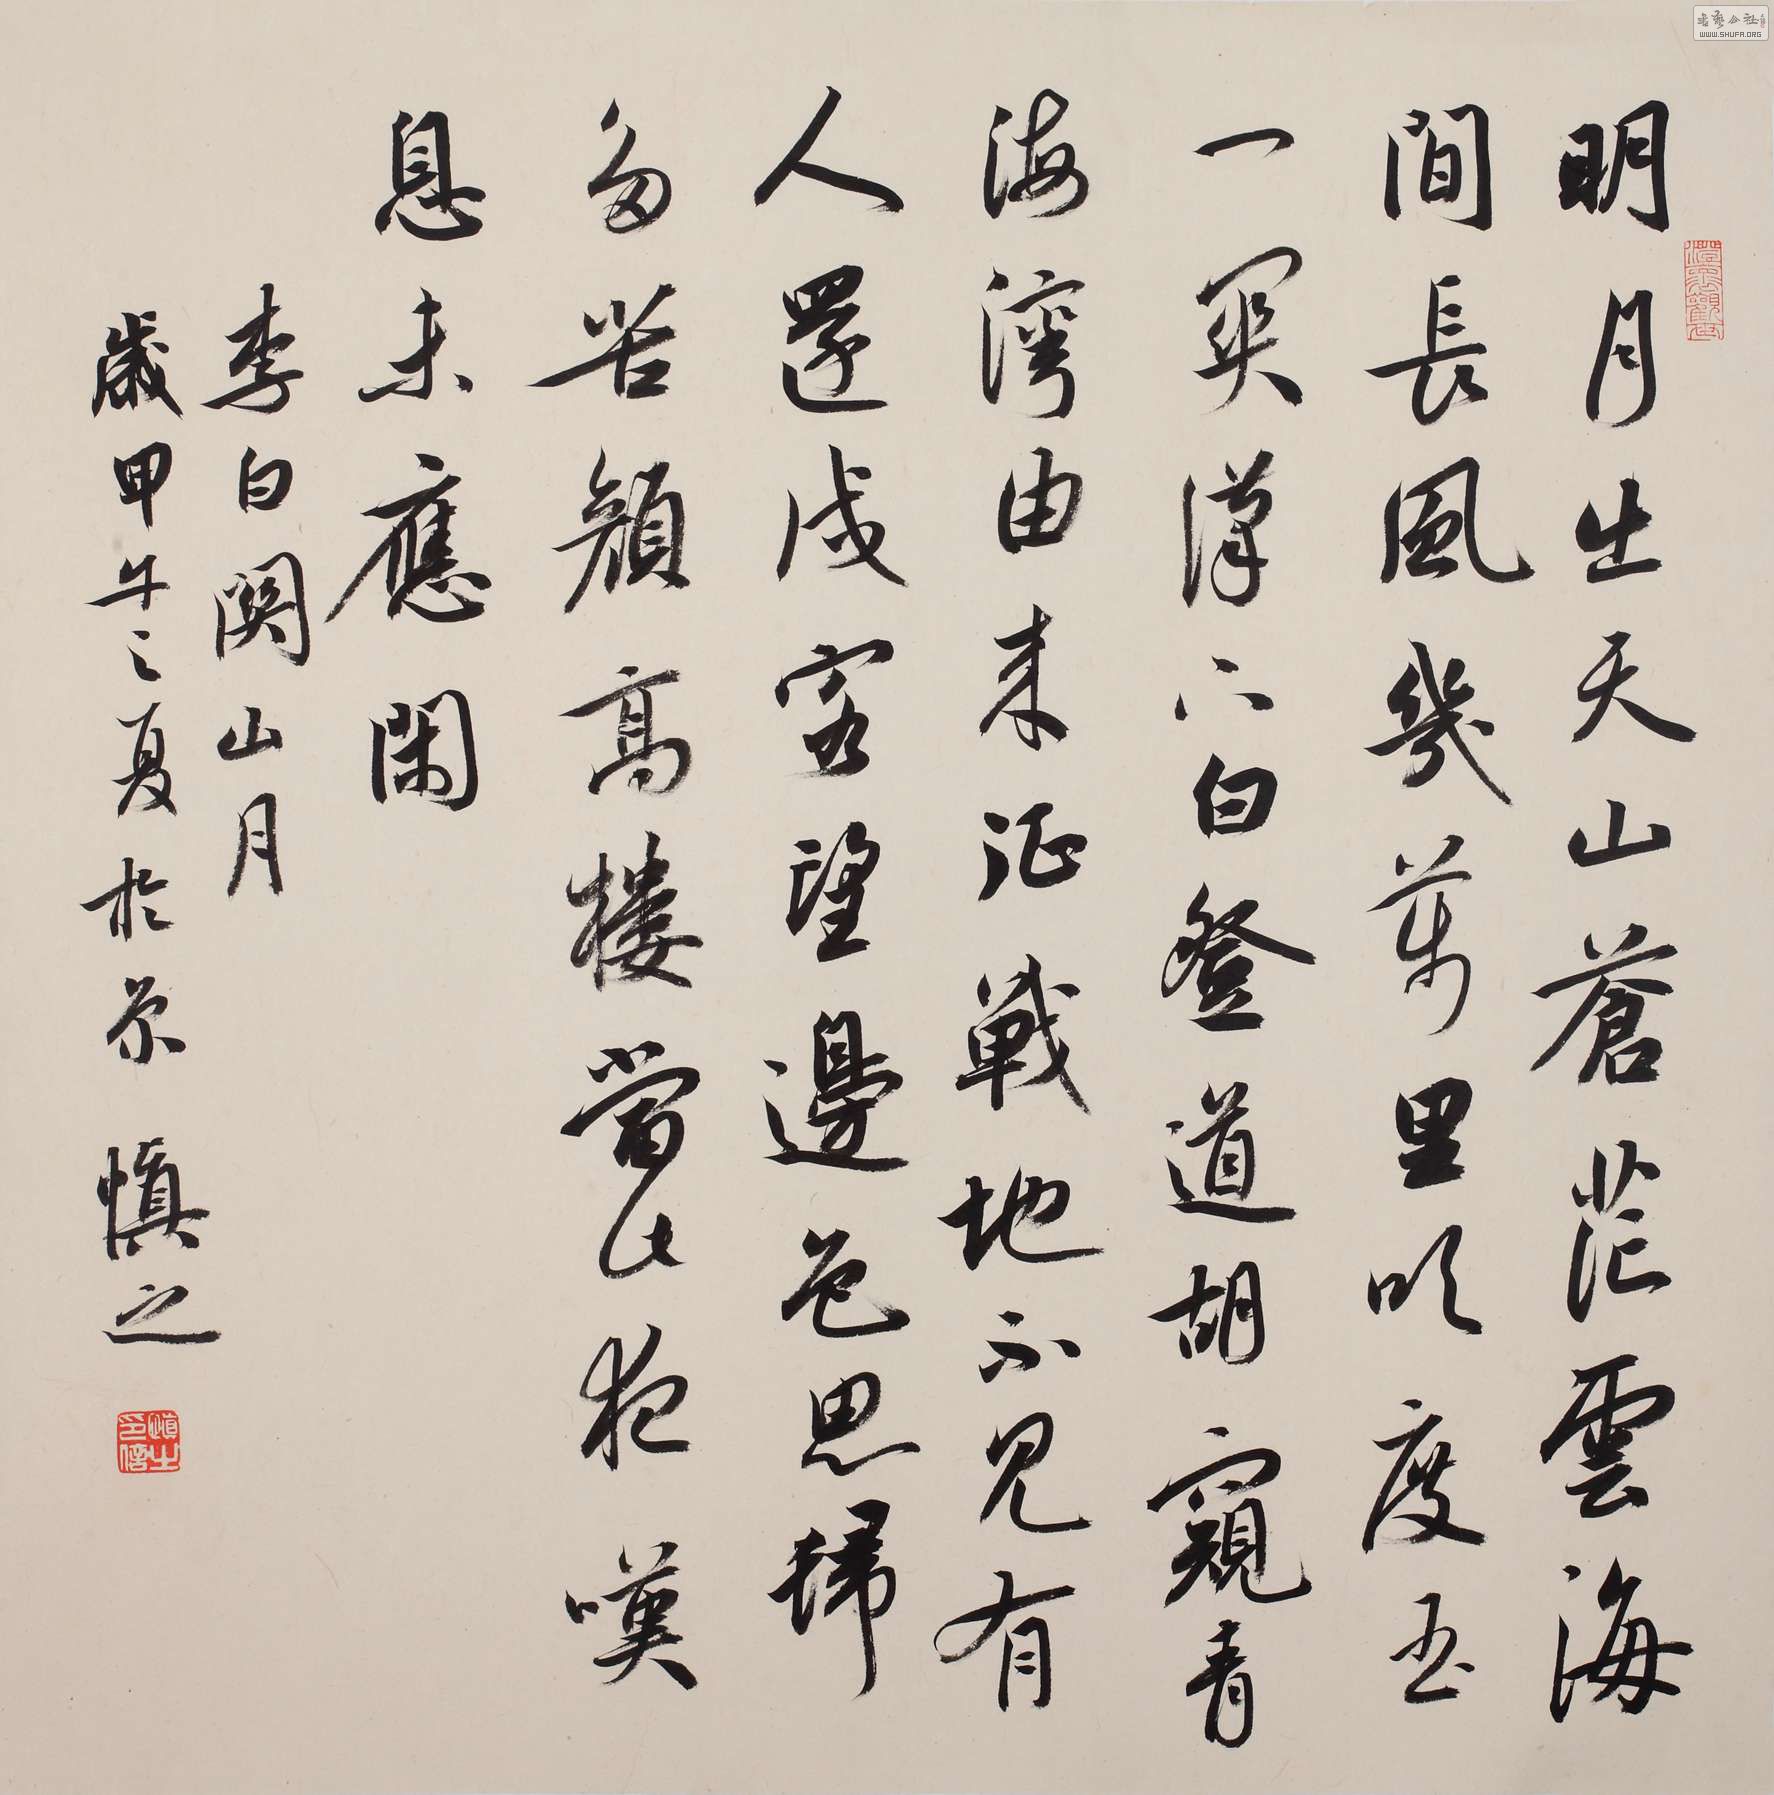 明月出天山蒼茫雲海
間長風幾萬里吹度玉
門關漢下白登道胡窺青
海灣由來征戰地不見有
人還戍客望邊色思歸
多苦顏高樓當此夜嘆
息未應閑
李白關山月
歲甲午之夏於京 慎之
慎之印信
書藝公社
WWW.SHUFA.ORG